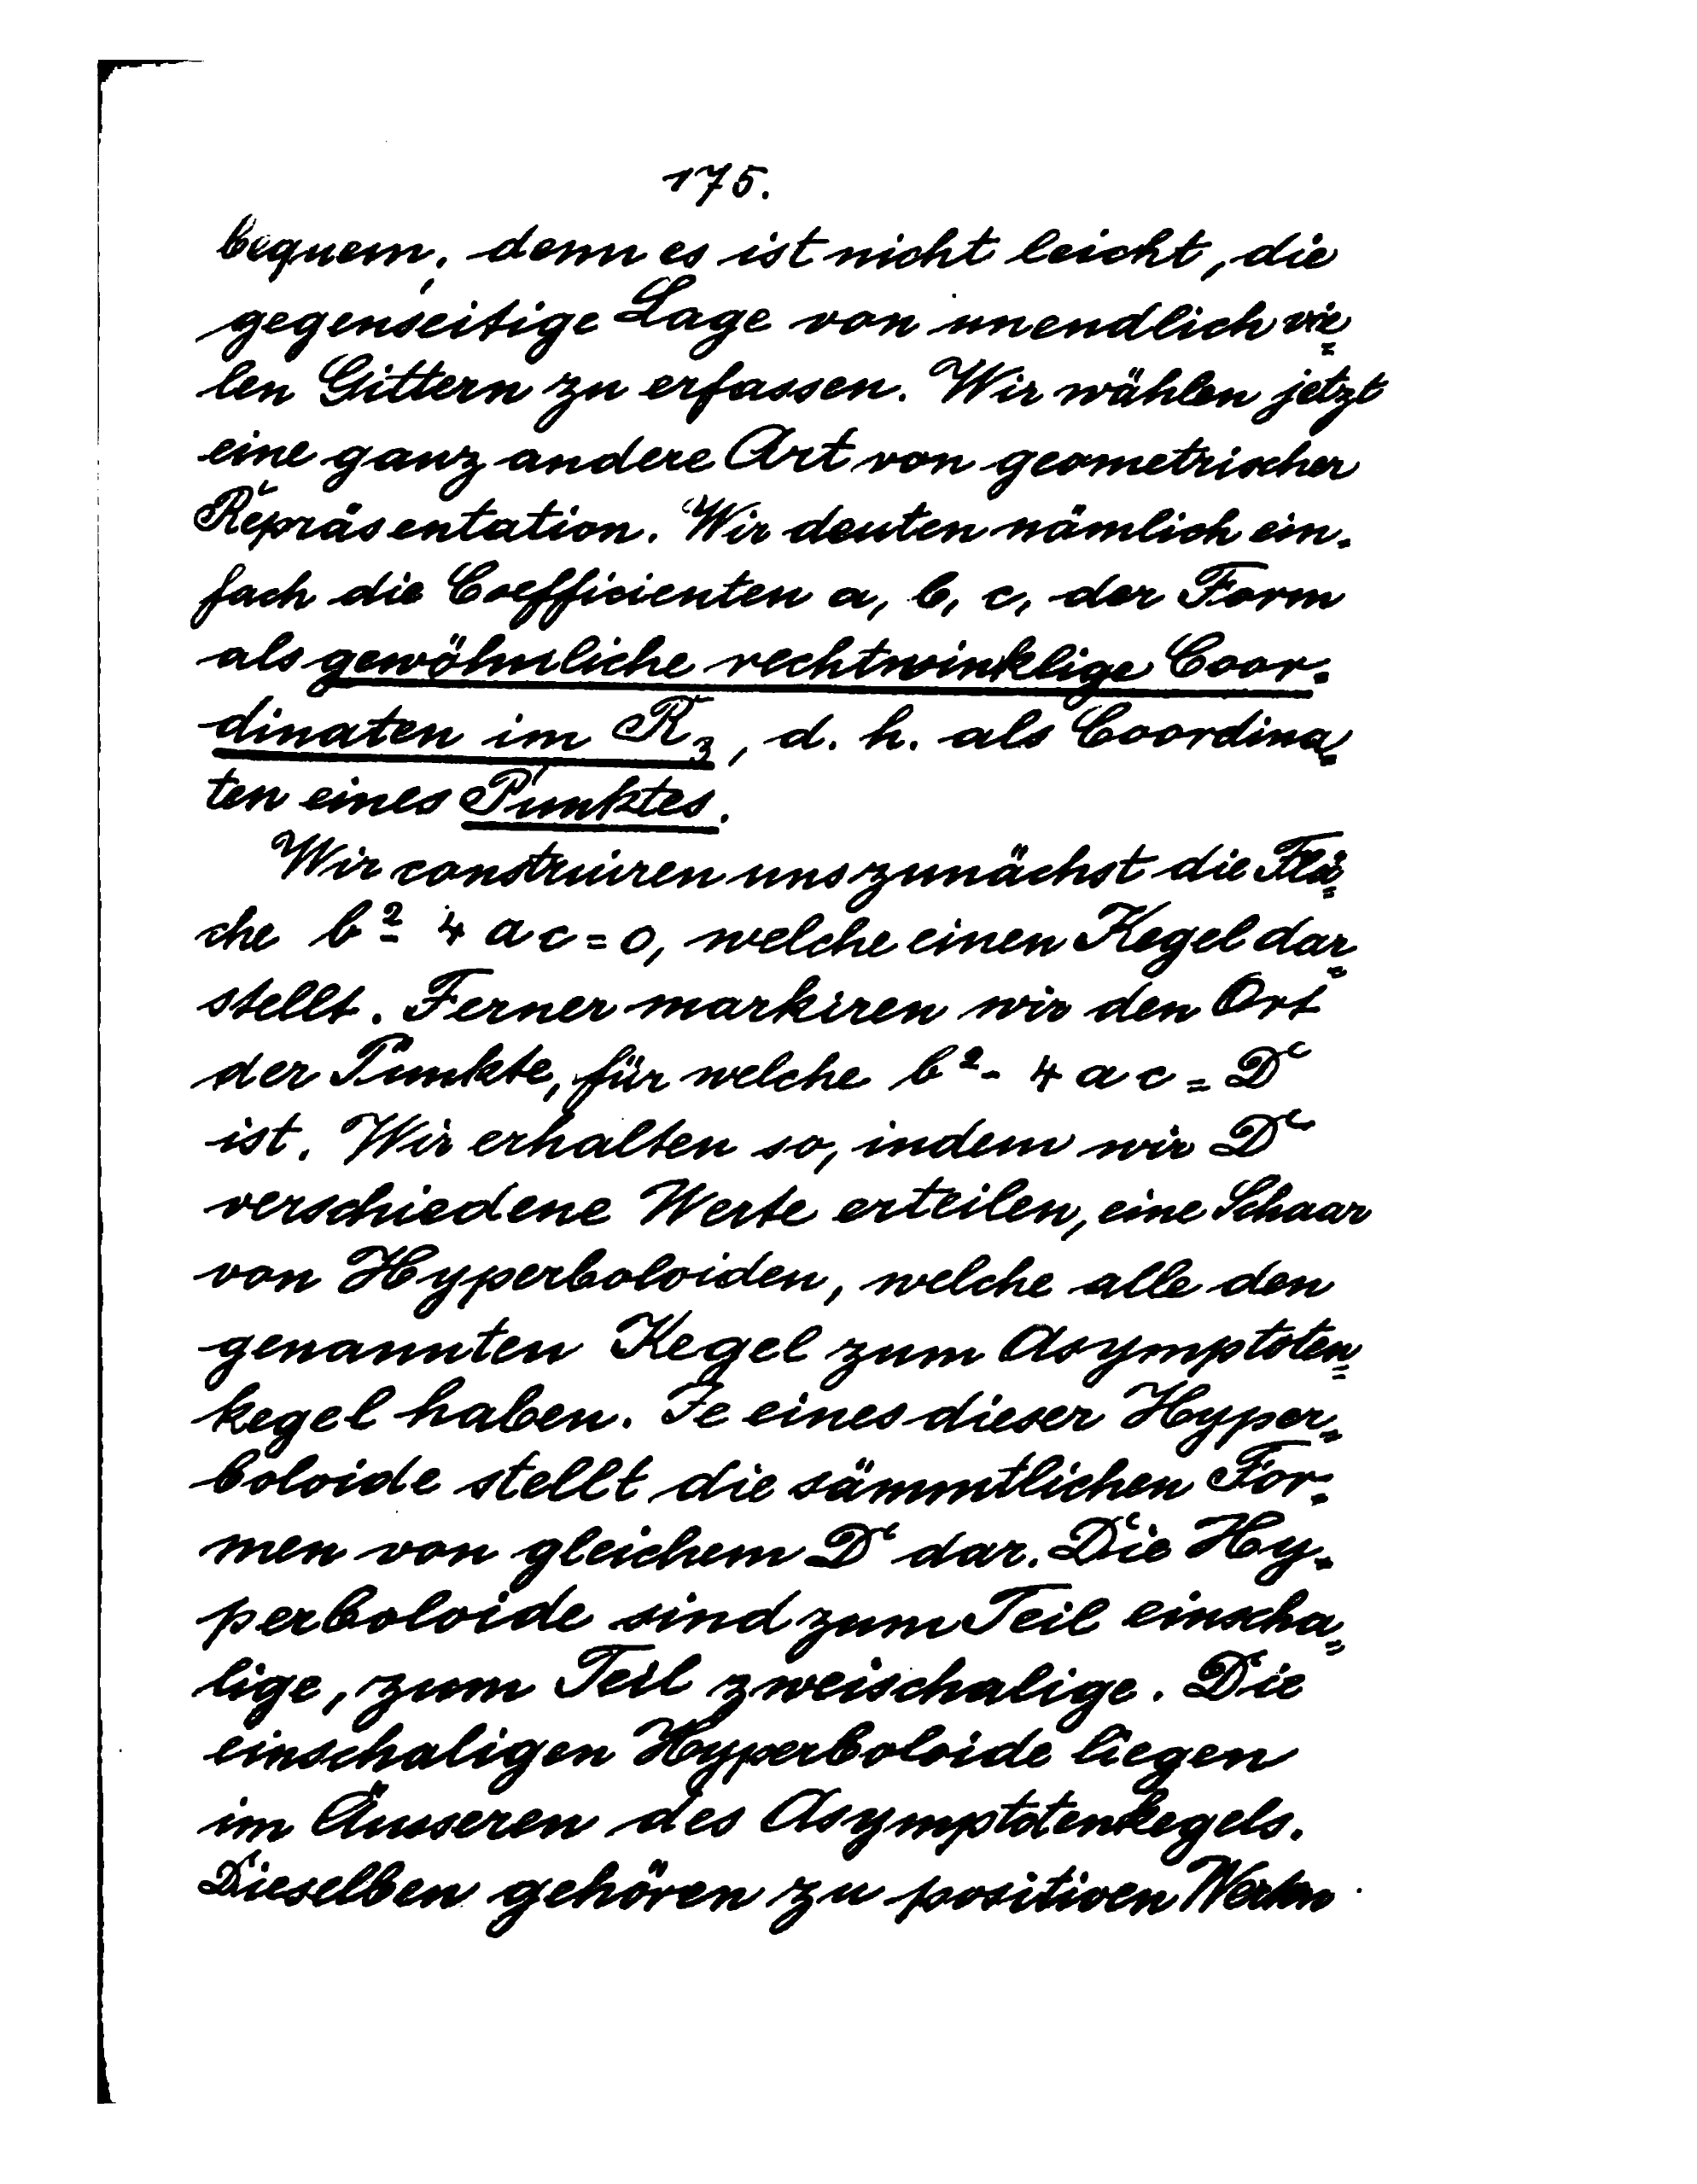 175.
bequem; denn es ist nicht leicht, die
gegenseitige Lage von unendlich vie=
len Gittern zu erfassen. Wir wählen jetzt
eine ganz andere Art von geometrischer
Repräsentation. Wir deuten nämlich ein=
fach die Coefficienten a, b, c, der Form
als gewöhnliche rechtwinklige Coor=
dinaten im R₃, d. h. als Coordina=
ten eines Punktes.
Wir construiren uns zunächst die Flä=
che b² - 4 a c = 0, welche einen Kegel dar=
stellt. Ferner markiren wir den Ort
der Punkte, für welche b² - 4 a c = D
ist. Wir erhalten so, indem wir D
verschiedene Werte erteilen, eine Schaar
von Hyperboloiden, welche alle den
genannten Kegel zum Asymptoten=
kegel haben. Je eines dieser Hyper=
boloide stellt die sämmtlichen For=
men von gleichem D dar. Die Hy=
perboloide sind zum Teil einscha=
lige, zum Teil zweischalige. Die
einschaligen Hyperboloide liegen
im Äusseren des Asymptotenkegels.
Dieselben gehören zu positiven Werten